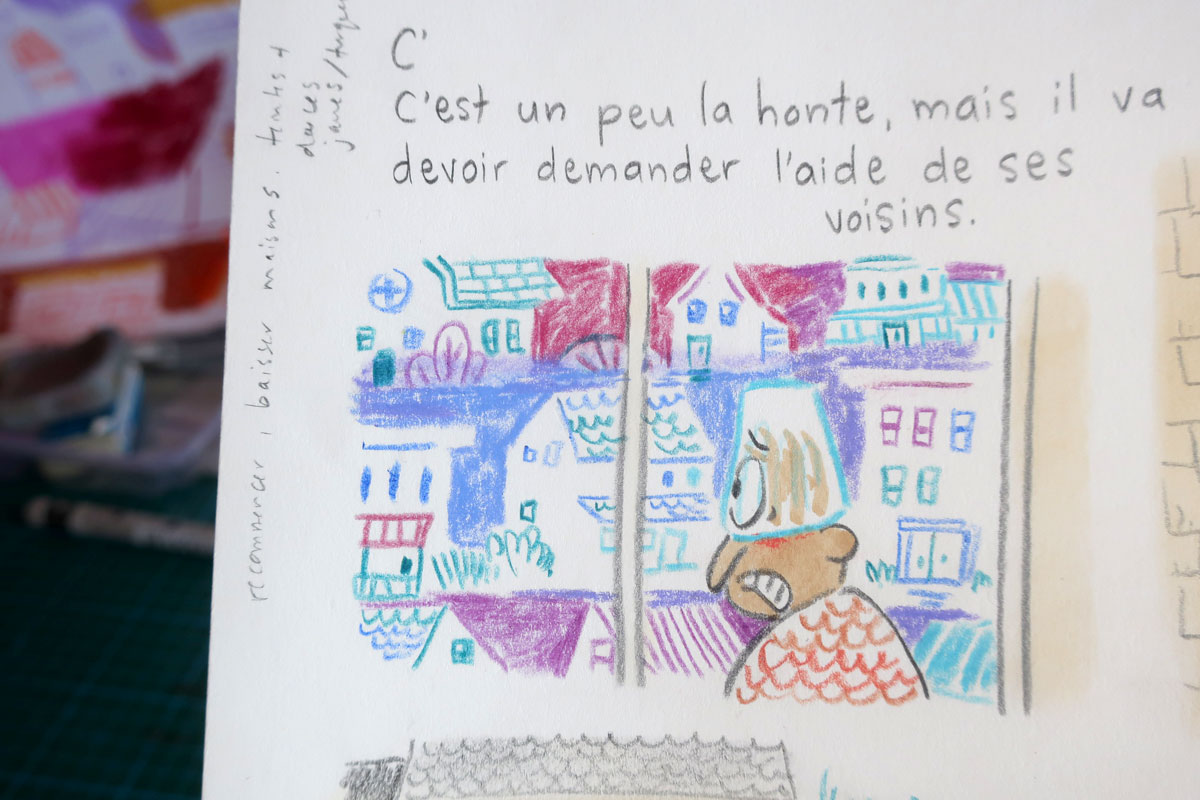 C'
C'est un peu la honte, mais il va
devoir demander l'aide de ses
voisins.
recommencer, baisser maisons. teintes +